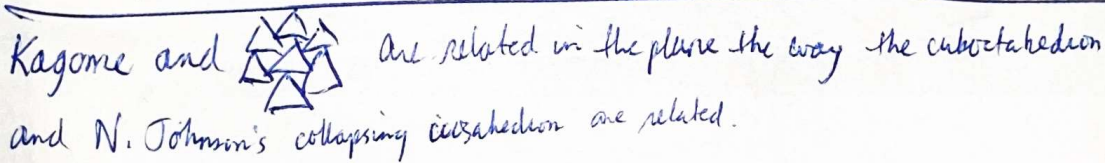 Kagome and are related in the plane the way the cuboctahedron
and N. Johnson's collapsing icosahedron are related.